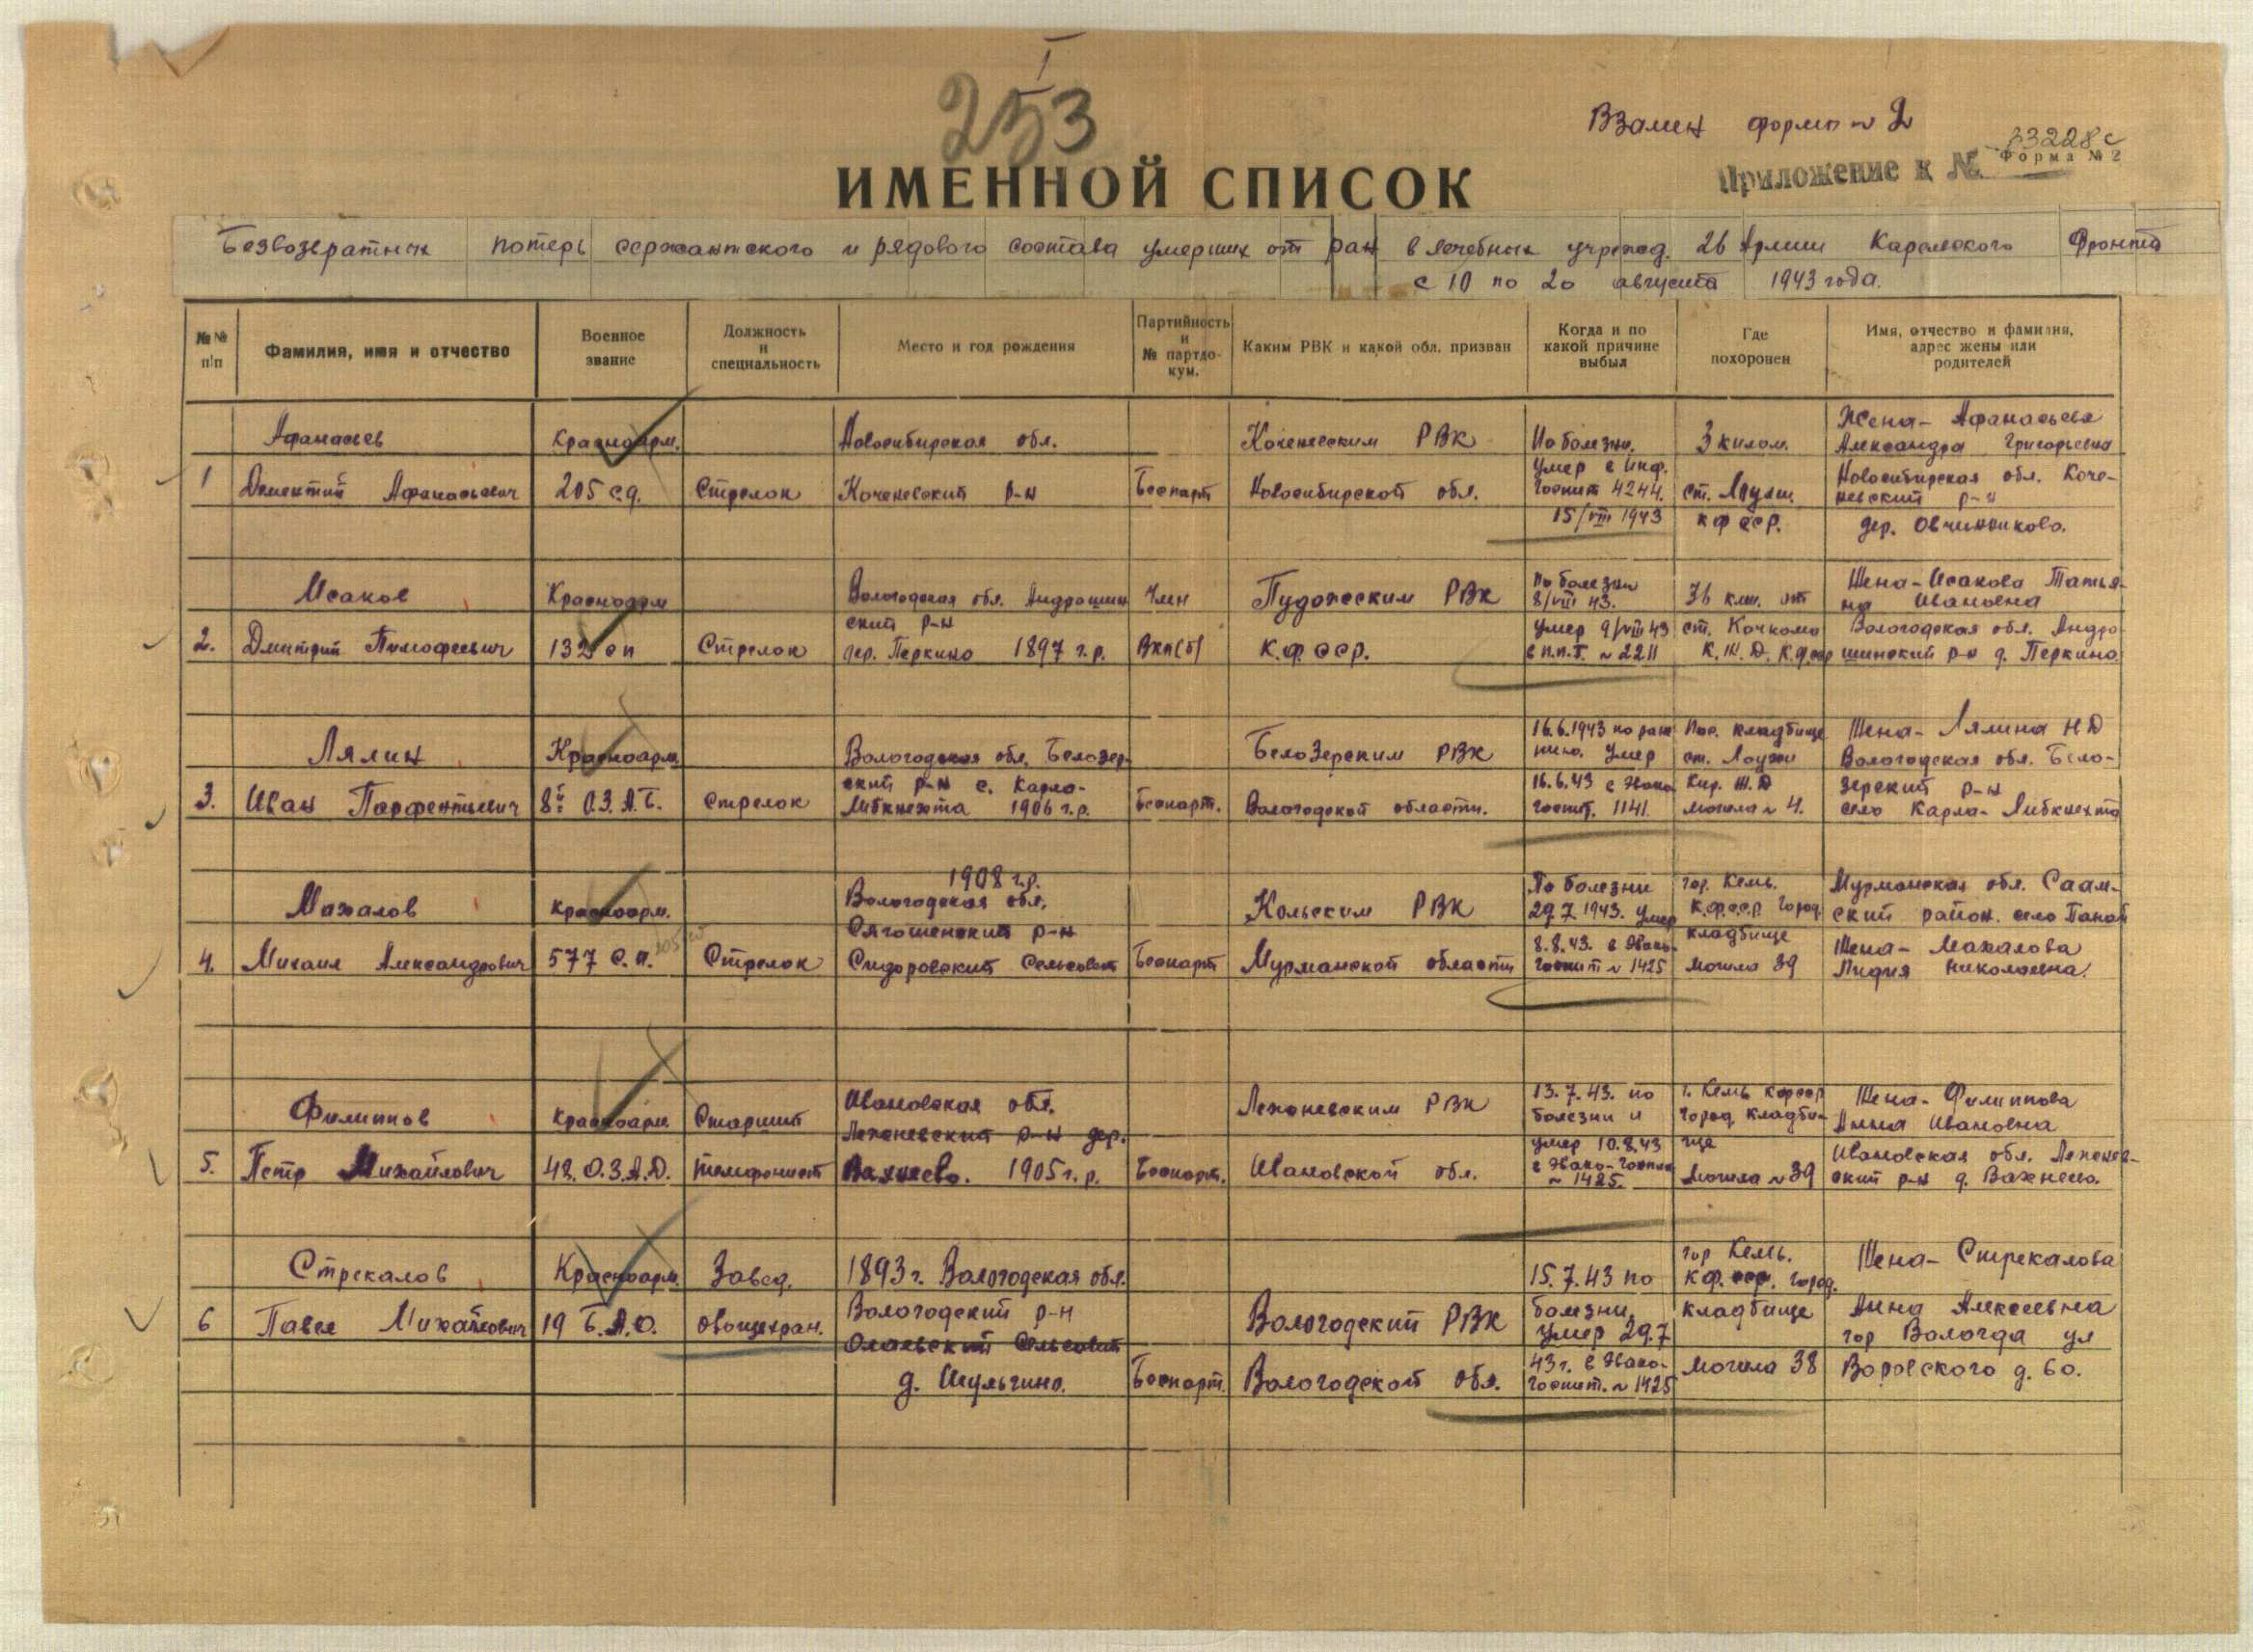 253
Взамен формы № 2
33228с
Приложение к №
Форма № 2
ИМЕННОЙ СПИСОК
Безвозвратных потерь сержантского и рядового состава умерших от ран в лечебных учрежд. 26 Армии Карельского Фронта
с 10 по 20 августа 1943 года.
№№ п/п
Фамилия, имя и отчество
Военное звание
Должность и специальность
Место и год рождения
Партийность и № партдокум.
Каким РВК и какой обл. призван
Когда и по какой причине выбыл
Где похоронен
Имя, отчество и фамилия, адрес жены или родителей
1
Афанасьев
Дементий Афанасьевич
Красноарм.
205 с.д.
Стрелок
Новосибирская обл.
Коченевский р-н
Беспарт
Коченевским РВК
Новосибирской обл.
По болезни.
умер в инф.
госпит 4244.
15/VIII 1943
3 килом.
ст. Лоухи
КФССР.
Жена - Афанасьева
Александра Григорьевна
Новосибирская обл. Коче-
невский р-н
дер. Овчинниково.
2.
Исаков
Дмитрий Тимофеевич
Красноарм
132 сп
Стрелок
Вологодская обл. Андошин
ский р-н
дер. Перкино 1897 г.р.
Член
ВКП(б)
Пудожским РВК
К.Ф.ССР.
По болезни
8/VIII 43.
умер 9/VIII 43
в п.п.г. № 2211
36 клм. от
ст. Кочкома
К.Ж.Д. К.Ф.ССР
Жена - Исакова Татья-
на Ивановна
Вологодская обл. Андо
шинский р-н д. Перкино
3.
Лялин
Иван Парфентьевич
Красноарм.
8й О.З.А.Б.
Стрелок
Вологодская обл. Белозер-
ский р-н с. Карла-
Либкнехта 1906 г.р.
Беспарт.
Белозерским РВК
Вологодской области.
16.6.1943 по ране
нию. умер
16.6.43 в Эвако
госпит. 1141.
Пос. кладбище
ст. Лоухи
Кир. Ж.Д
могила № 4.
Жена - Лялина Н Д
Вологодская обл. Бело-
зерский р-н
село Карла - Либкнехта
4.
Махалов
Михаил Александрович
Красноарм.
577 С.П.
Стрелок
1908 г.р.
Вологодская обл.
р-н
Сидоровский сельсовет
Беспарт
Кольским РВК
Мурманской области
По болезни
29.7.1943. умер
8.8.43. в Эвако-
госпит № 1425
гор. Кемь.
К.Ф.ССР город.
кладбище
могила 39
Мурманская обл. Саам-
ский район. село Паной
Жена - Махалова
Лидия Николаевна.
5.
Филиппов
Петр Михайлович
Красноарм
48. О.З.А.Д.
Старший
телефонист
Ивановская обл.
Лежневский р-н дер.
Вахнево. 1905 г.р.
Беспарт.
Лежневским РВК
Ивановской обл.
13.7.43. по
болезни и
умер 10.8.43
в Эвако-госпит
№ 1425.
г. Кемь КФССР
город. кладби-
ще
Могила № 39
Жена - Филиппова
Анна Ивановна
Ивановская обл. Лежнев-
ский р-н д. Вахнево.
6
Стрекалов
Павел Михайлович
Красноарм.
19 Б.А.О.
Завед.
овощехран.
1893 г. Вологодская обл.
Вологодский р-н
сельсовет
д. Шульгино.
Беспарт.
Вологодский РВК
Вологодской обл.
15.7.43 по
болезни,
умер 29.7
43 г. в Эвако-
госпит. № 1425
гор Кемь.
КФ.ССР. город.
кладбище
Могила 38
Жена - Стрекалова
Анна Алексеевна
гор Вологда ул
Воровского д. 60.